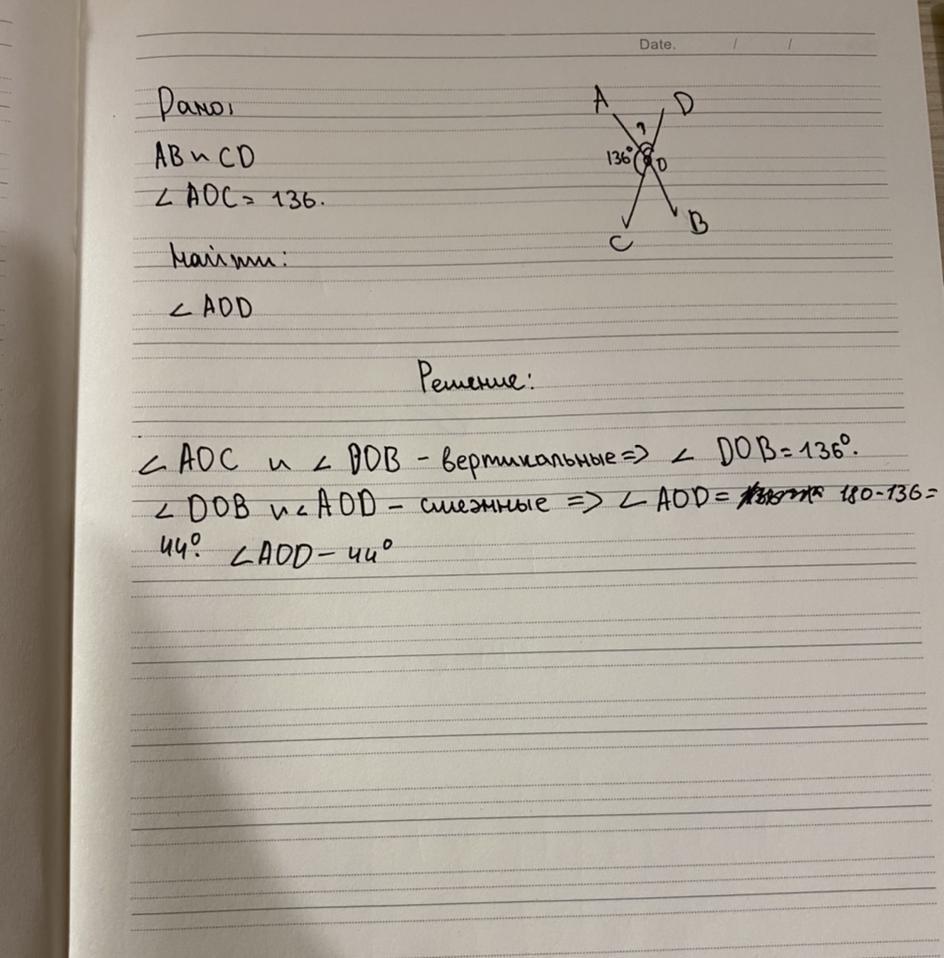 Date. / /
Дано:
AB и CD
∠ AOC = 136.
Найти:
∠ AOD
A D
? 
136° O
C B
Решение:
∠ AOC и ∠ DOB - вертикальные => ∠ DOB = 136°.
∠ DOB и ∠ AOD - смежные => ∠ AOD = 180-136=
44°. ∠AOD - 44°